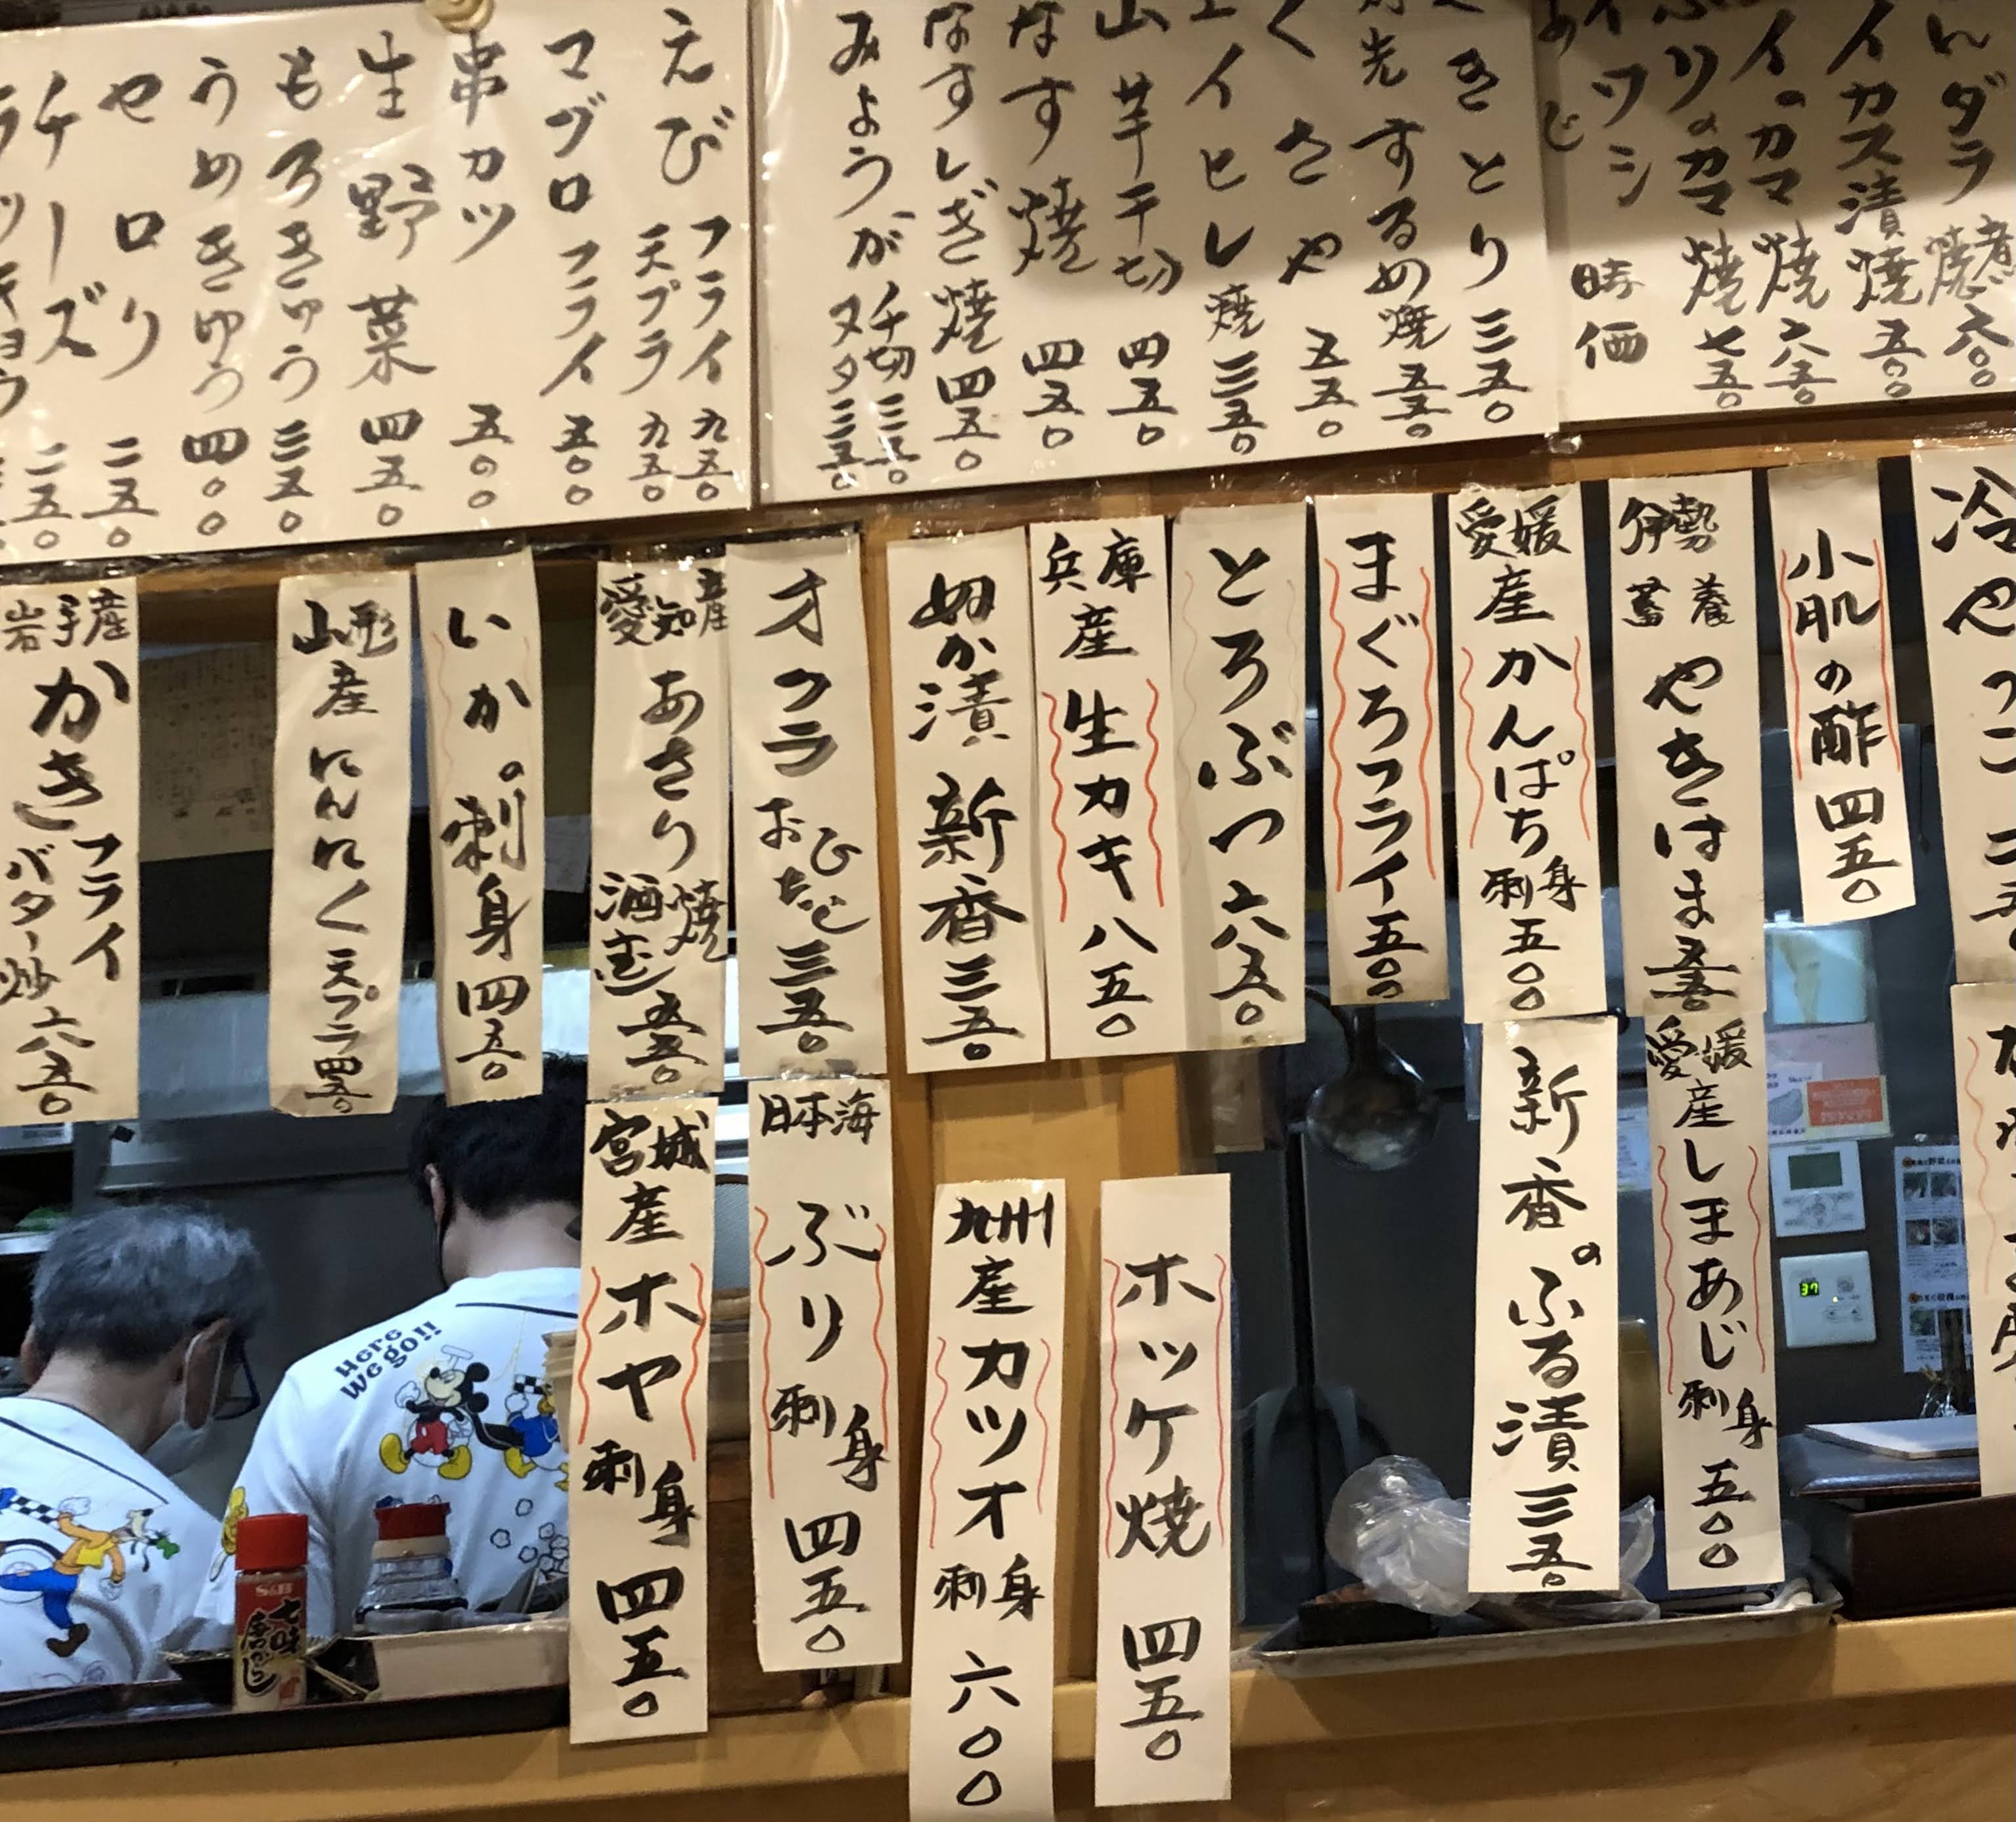 煮
焼
六〇〇
カス漬焼 五〇〇
カマ焼 六八五〇
ぶりのカマ焼 七五〇
イワシ
あじ
時価
きとり 三五〇
するめ焼 五五〇
くさや 五五〇
エイヒレ焼 三五〇
山芋千切 四五〇
なす焼 四五〇
なすしぎ焼 四五〇
みょうが 千切 三五〇
ヌタ 三五〇
えび フライ 九五〇
天プラ 九五〇
マグロフライ 五〇〇
串カツ 五〇〇
生野菜 四五〇
もろきゅう 三五〇
うめきゅう 四〇〇
セロリ 二五〇
チーズ 二五〇
冷やっこ 二五〇
小肌の酢 四五〇
伊勢
蓄養
やきはま 五五〇
愛媛産 かんぱち刺身 五〇〇
まぐろフライ 五〇〇
とろぶつ 六五〇
兵庫産 生カキ 八五〇
ぬか漬 新香 三五〇
オクラ おひたし 三五〇
愛知産 あさり 焼
酒蒸し 五五〇
いかの刺身 四五〇
山形産 にんにく 天プラ 四五〇
岩手産 かき フライ
バター炒 六五〇
愛媛産 しまあじ刺身 五〇〇
新香のふる漬 三五〇
ホッケ焼 四五〇
九州産 カツオ刺身 六〇〇
日本海 ぶり刺身 四五〇
宮城産 ホヤ刺身 四五〇
Here
We go!!
S&B
七味
唐がらし
37